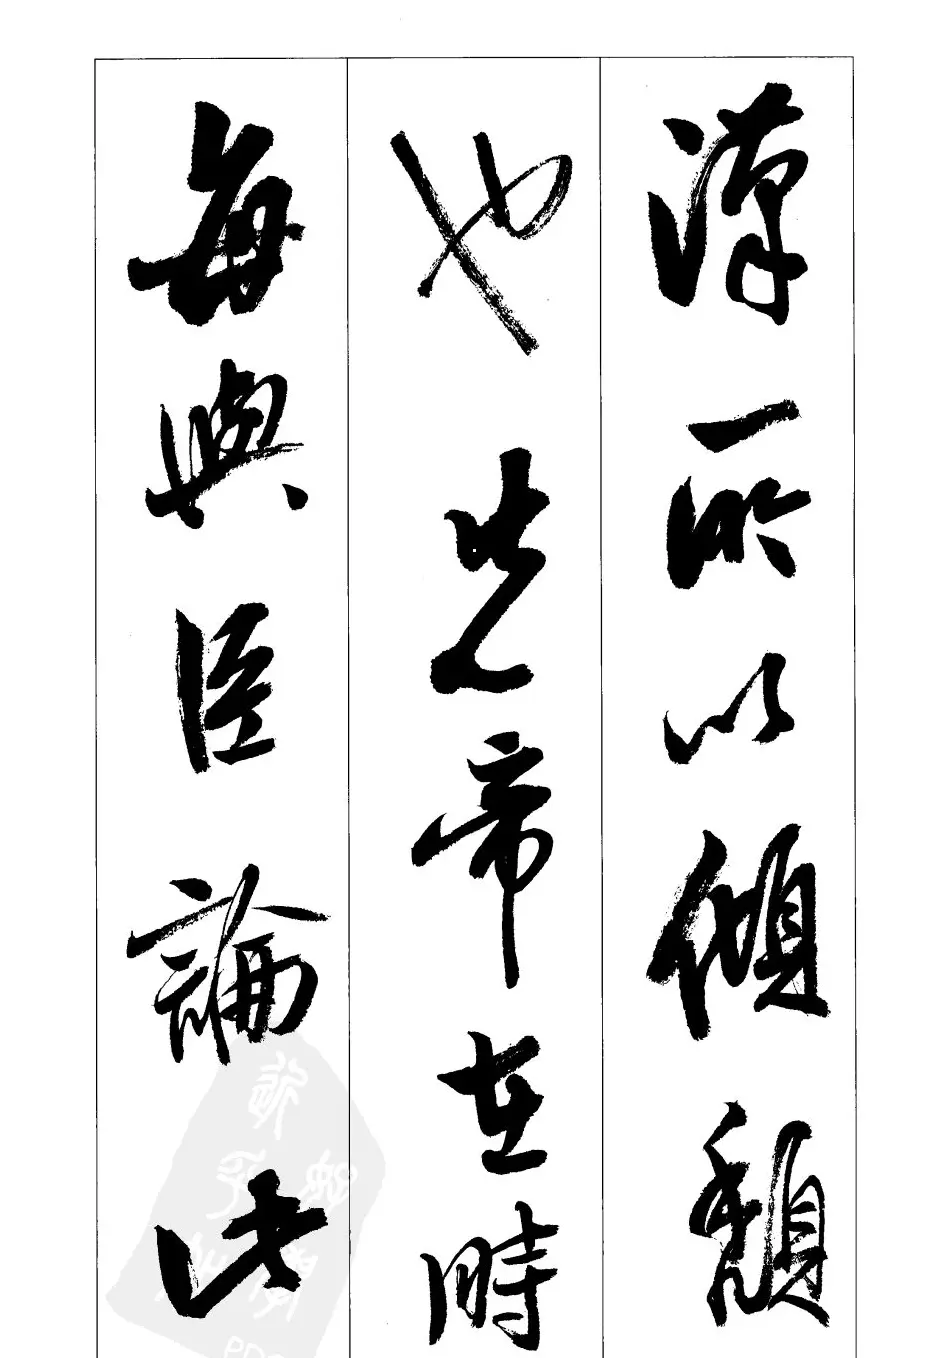 漢所以傾頹
也先帝在時
每與臣論此